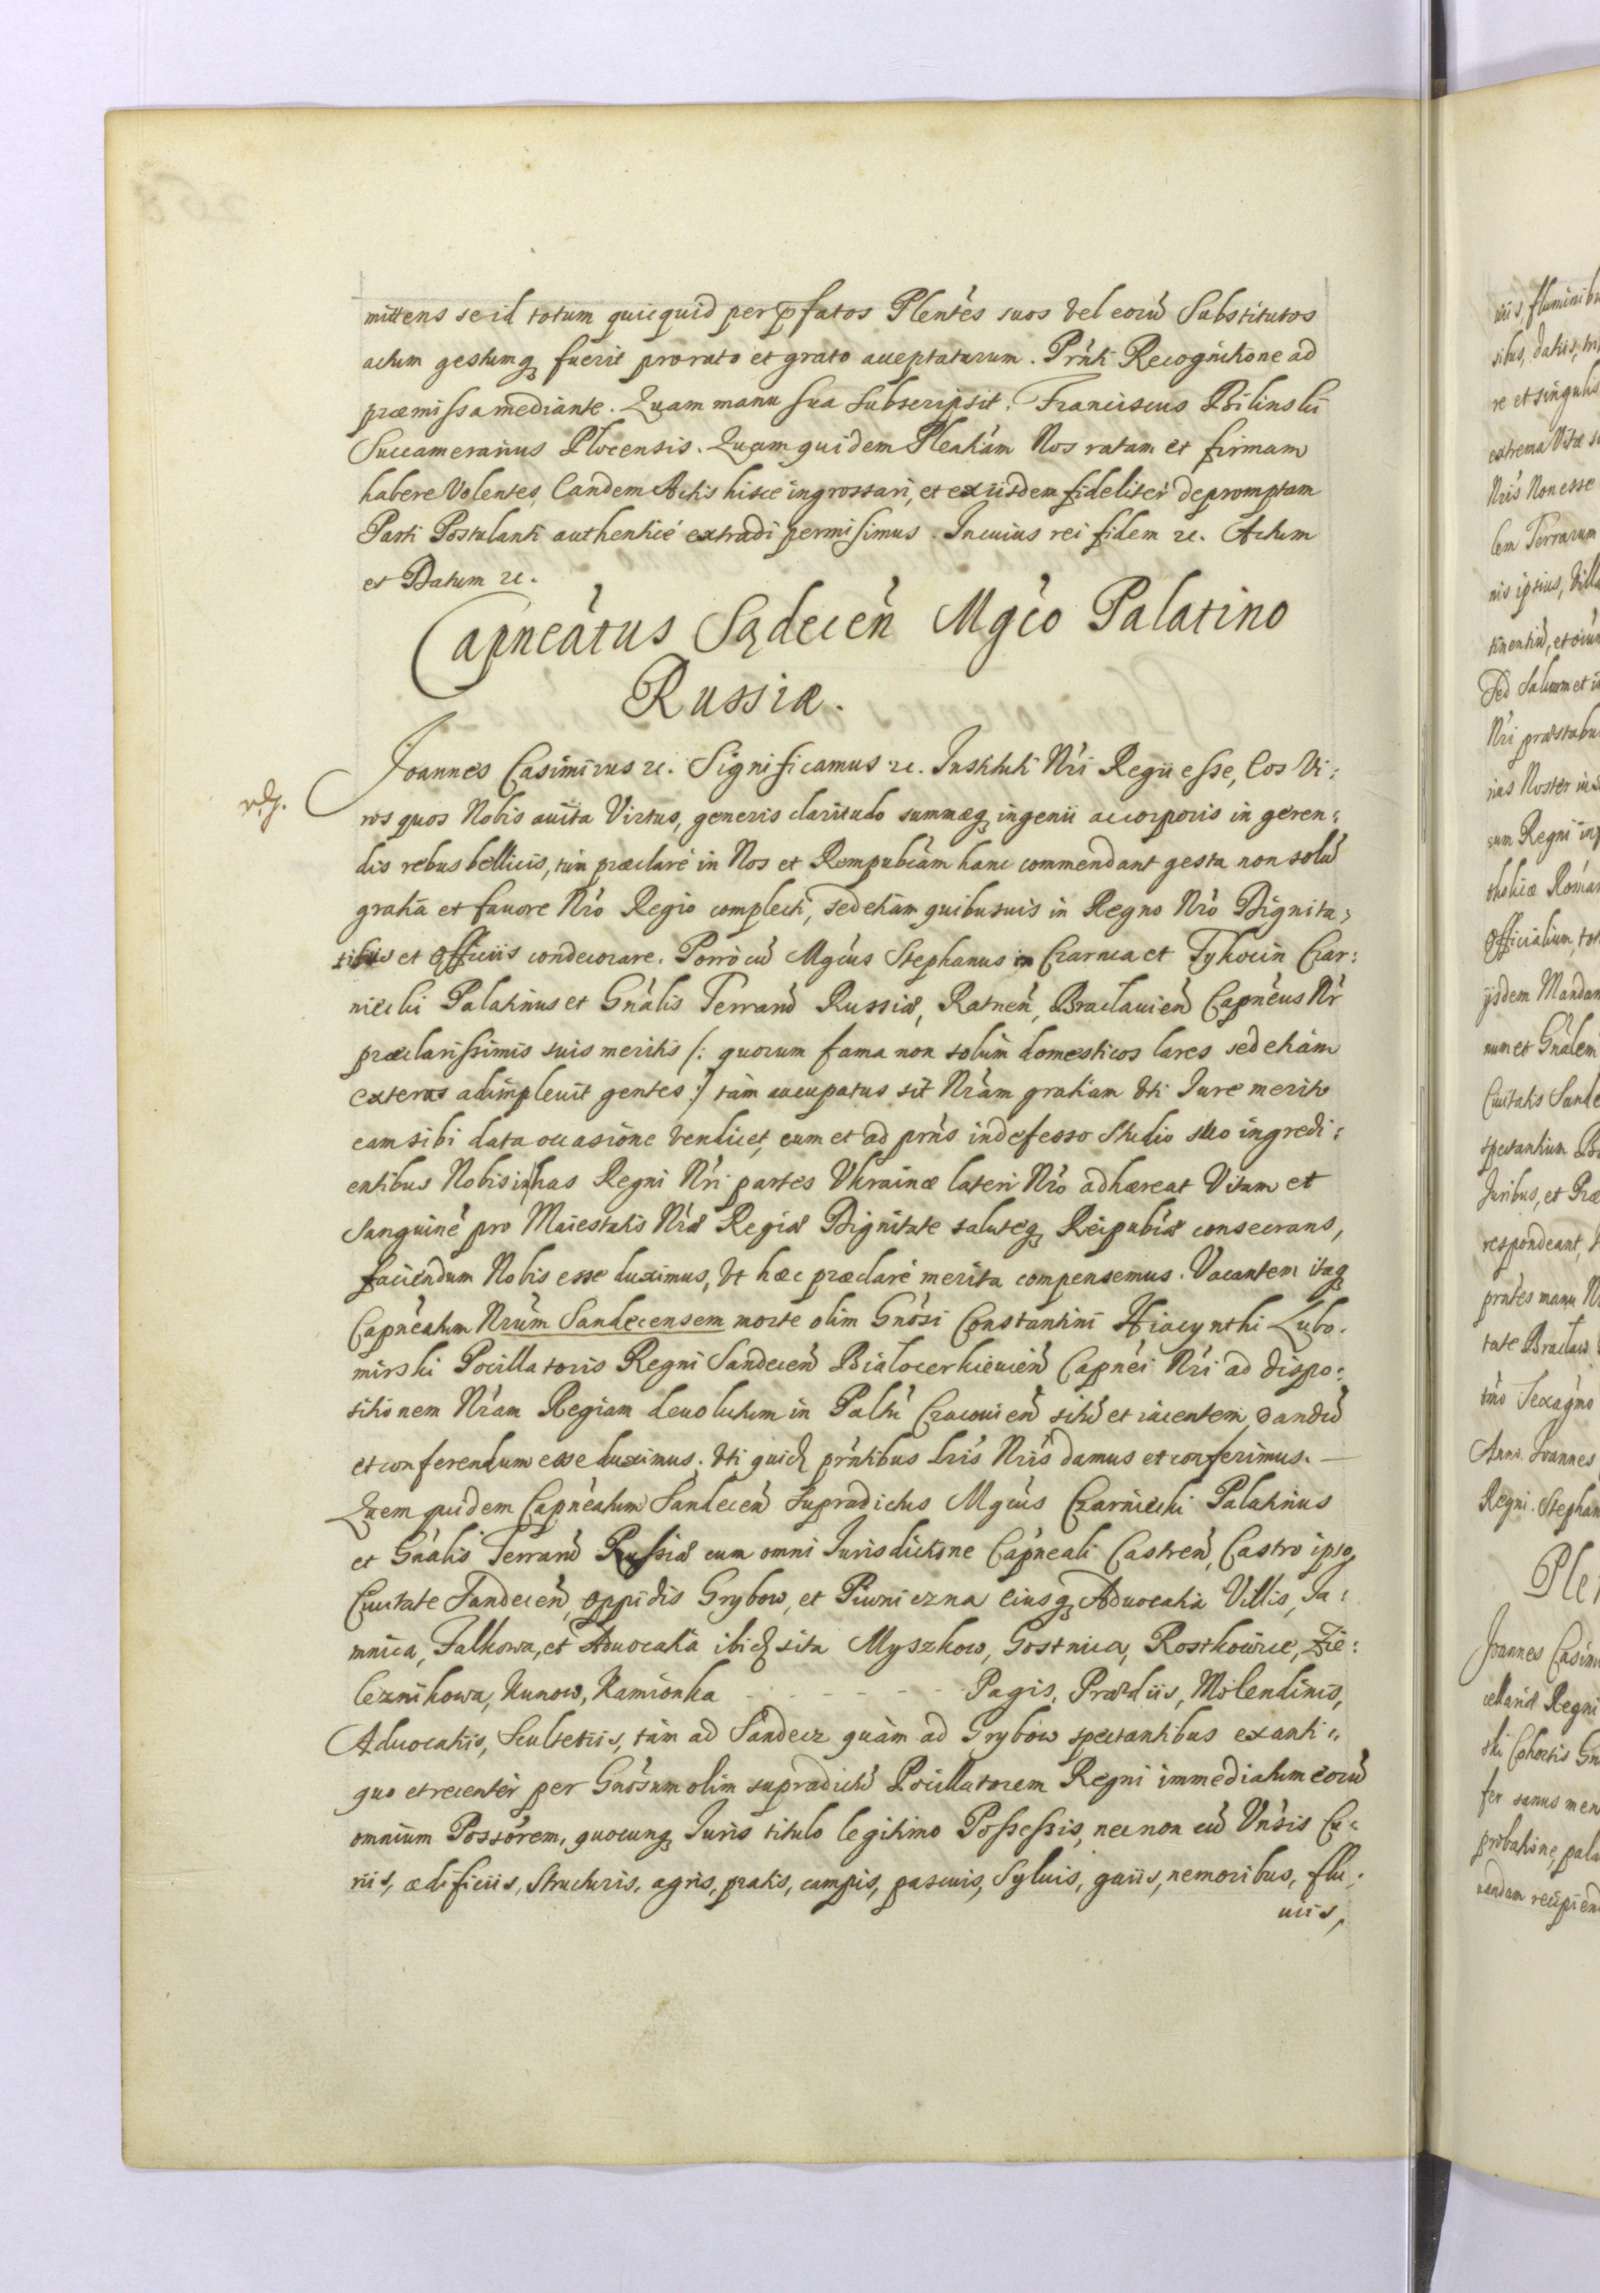 mittens se id totum quicquid per pfatos Plentes suos vel eorũ Substitutos
actum gestumq fuerit pro rato et grato acceptaturum. Prnti Recognitione ad
præmissa mediante. Quam manu sua subscripsit. Franciscus Bilinski
Succamerarius Plocensis. Quam quidem Pleatiam Nos ratam et firmam
habere Volentes, Eandem Actis hisce ingrossari, et ex iisdem fideliter depromptam
Parti Postulanti authenticè extradi permisimus. In cuius rei fidem etc. Actum
et Datum etc.
Capneatus Sądecen Mgco Palatino
Russiæ.
Joannes Casimirus etc. Significamus etc. Instituti Nri Regii esse, Eos Vi:
ros quos Nobis auita Virtus, generis claritudo summæq ingenii ac corporis in geren:
dis rebus bellicis, tùm præclarè in Nos et Rempubcam hanc commendant gesta non solũ
gratia et fauore Nro Regio complecti, sed etiam quibusuis in Regno Nro Dignita:
tibus et Officiis condecorare. Porrò cũ Mgcus Stephanus in Czarnca et Tykocin Czar:
niecki Palatinus et Gnalis Terrarũ Russiæ, Ratnen, Braclauien Capneus Nr
præclarissimis suis meritis /: quorum fama non solùm domesticos lares sed etiam
exteras adimpleuit gentes :/ tàm aucupatus sit Nram gratiam Vti Jure merito
eam sibi data occasione vendicet, cum et ad prns indefesso studio suo ingredi:
entibus Nobis in has Regni Nri partes Vkrainæ lateri Nro adhæreat Vitam et
Sanguinẽ pro Maiestatis Nræ Regiæ Dignitate saluteq Reipubcæ consecrans,
faciendum Nobis esse duximus, Vt hæc præclarè merita compensemus. Vacantem itaq
Capneatum Nrum Sandecensem morte olim Gnosi Constantini Hiacynthi Lubo:
mirski Pocillatoris Regni Sandecen Bialocerkieuien Capnei Nri ad dispo:
sitionem Nram Regiam deuolutum in Paltu Cracouien sitũ et iacentem, dandũ
et conferendum esse duximus. Vti quidẽ prntibus Lris Nris damus et conferimus.
Quem quidem Capneatum Sandecen Supradictus Mgcus Czarniecki Palatinus
et Gnalis Terrarũ Russiæ cum omni Jurisdictione Capneali Castren, Castro ipso,
Ciuitate Sandecen, oppidis Grybow, et Piwniczna eiusq Aduocatia Villis, Ja:
mnica, Falkowa, et Aduocatia ibidẽ sita Myszkow, Gostwica, Rostkowice, Zie:
leznikowa, Kunow, Kamionka - - - - - - Pagis, Prædiis, Molendinis,
Aduocatiis, Scultetiis, tàm ad Sandecz quàm ad Grybow spectantibus ex anti:
quo et recenter per Gnosum olim supradictũ Pocillatorem Regni immediatum eorũ
omnium Possorem, quocunq Juris titulo legitimo Possessis, nec non cũ Vnsis Cu:
riis, ædificiis, structuris, agris, pratis, campis, pascuis, Syluis, gaiis, nemoribus, flu:
uiis,